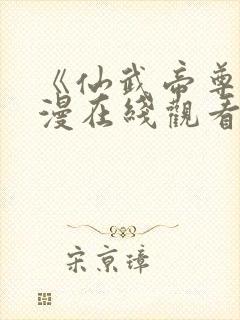 《仙武帝尊
漫在綫觀看
宋京璋